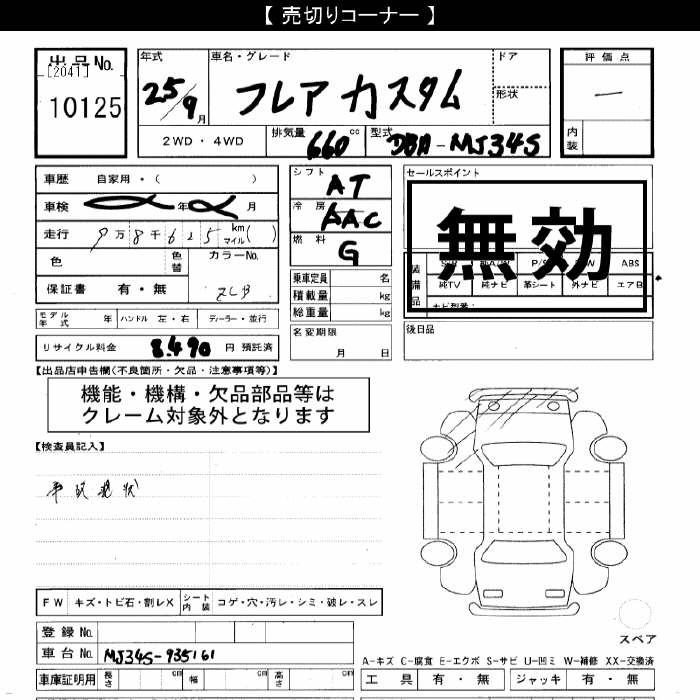 【 売切りコーナー 】
出品No.
[2041]
10125
年式
25/9月
車名・グレード
フレア カスタム
ドア
形状
評価点
一
内装
2WD ・ 4WD
排気量
660cc
型式
DBA-MJ34S
車歴 自家用・( )
車検 年 月
走行 9万8千625 km マイル( )
色
色替
カラーNo.
ZLB
保証書 有・無
シフト
AT
冷房
AAC
燃料
G
乗車定員 名
積載量 kg
総重量 kg
セールスポイント
無効
装備品
ABS
純TV 純ナビ 革シート 外ナビ エアB
モデル年式 年 ハンドル 左・右 ディーラー・並行
名変期限
月 日
後日品
リサイクル料金 8,490 円 預託済
【出品店申告欄(不良箇所・欠品・注意事項等)】
機能・機構・欠品部品等は
クレーム対象外となります
【検査員記入】
現状
FW キズ・トビ石・割レX シート内装 コゲ・穴・汚レ・シミ・破レ・スレ
スペア
登録No.
車台No. MJ34S-935161
A-キズ C-腐食 E-エクボ S-サビ U-凹ミ W-補修 XX-交換済
車庫証明用 長さ cm 幅 cm 高さ cm
工具 有・無 ジャッキ 有・無